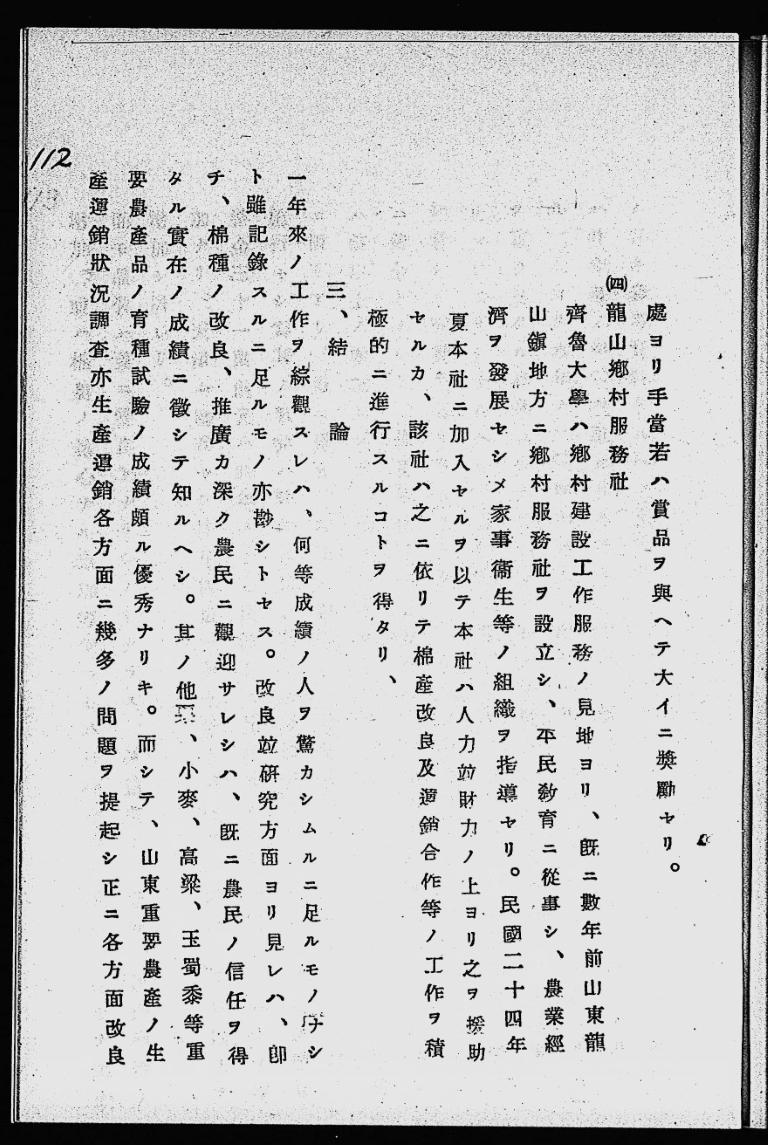 處ヨリ手當若ハ賞品ヲ與ヘテ大イニ奬勵セリ。
㈣龍山鄕村服務社
齊魯大學ハ鄕村建設工作服務ノ見地ヨリ、旣ニ數年前山東龍
山鎭地方ニ鄕村服務社ヲ設立シ、平民敎育ニ從事シ、農業經
濟ヲ發展セシメ家事衞生等ノ組織ヲ指導セリ。民國二十四年
夏本社ニ加入セルヲ以テ本社ハ人力竝財力ノ上ヨリ之ヲ援助
セルカ、該社ハ之ニ依リテ棉產改良及運銷合作等ノ工作ヲ積
極的ニ進行スルコトヲ得タリ、
三、結論
一年來ノ工作ヲ綜觀スレハ、何等成績ノ人ヲ驚カシムルニ足ルモノナシ
ト雖記錄スルニ足ルモノ亦尠シトセス。改良竝硏究方面ヨリ見レハ、卽
チ、棉種ノ改良、推廣カ深ク農民ニ觀迎サレシハ、旣ニ農民ノ信任ヲ得
タル實在ノ成績ニ徵シテ知ルヘシ。其ノ他、小麥、高粱、玉蜀黍等重
要農產品ノ育種試驗ノ成績頗ル優秀ナリキ。而シテ、山東重要農產ノ生
產運銷狀況調査亦生產運銷各方面ニ幾多ノ問題ヲ提起シ正ニ各方面改良
112